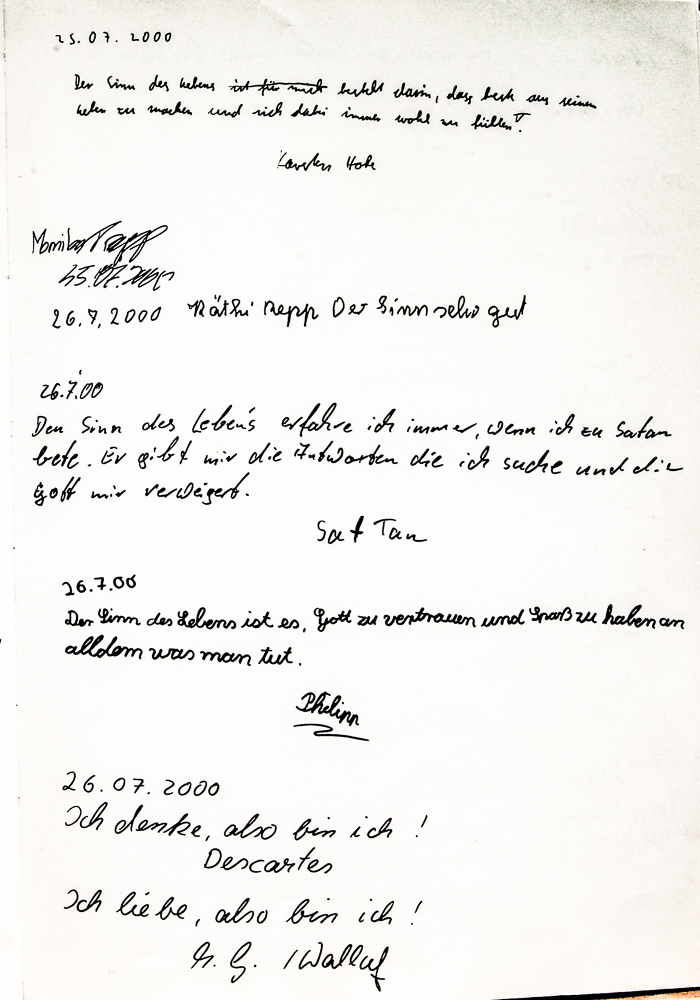 25.07.2000
Der Sinn des Lebens ist für mich besteht darin, dass beste aus seinem
Leben zu machen und sich dabei immer wohl zu fühlen".
Monika Rapp
25.07.2000
26.7.2000 Käthi Repp Der Sinn sehr gut
26.7.00
Den Sinn des Lebens erfahre ich immer, wenn ich zu Satan
bete. Er gibt mir die Antworten die ich suche und die
Gott mir verweigert.
Sat Tan
26.7.00
Der Sinn des Lebens ist es, Gott zu vertrauen und Spaß zu haben an
alldem was man tut.
Philipp
26.07.2000
Ich denke, also bin ich !
Descartes
Ich liebe, also bin ich !
G. /Walluf